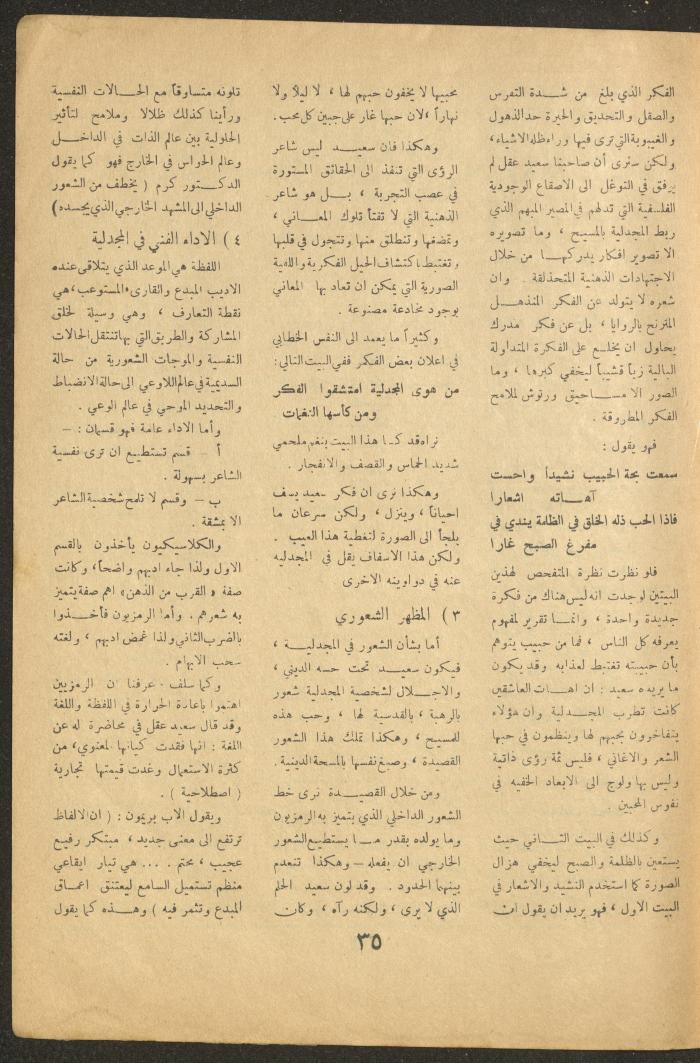 الفكر الذي بلغ من شدة التفرس
والصقل والتحديق والحيرة حد الذهول
والغيبوبة التي ترى فيها وراء ظله الاشياء ،
ولكن سنرى أن صاحبنا سعيد عقل لم
يرفق في التوغل الى الاصقاع الوجودية
الفلسفية التي تدلهم في المصير المبهم الذي
ربط المجدلية بالمسيح ، وما تصويره
الا تصوير افكار يدركهـا من خلال
الاجتهادات الذهنية المتحذلقة . وان
شعره لا يتولد عن الفكر المنذهـل
المترنح بالروايا ، بل عن فكر مدرك
يحاول ان يخلـع على الفكرة المتداولة
البالية زياً قشيباً ليخفي كبرها ، وما
الصور الا مساحيق ورتوش لملامح
الفكر المطروقة .
فهو يقول :
سمعت بحة الحبيب نشيداً واحست
آهـاته اشعارا
فاذا الحب ذله الخلق في الظلمة يندي في
مفرغ الصبح غارا
فلو نظرت نظرة المتفحص لهذين
البيتين لوجدت انه ليس هناك من فكرة
جديدة واحدة ، وانمـا تقرير لمفهوم
يعرفه كل الناس ، فما من حبيب يتوهم
بأن حبيبته تغتبط لعذابه وقد يكون
ما يريده سعيد : ان اهـات العاشقين
كانت تطرب المجـدلية وان هؤلاء
يتفاخرون بحبهم لها وينظمون في حبها
الشعر والاغاني ، فليس ثمة رؤى ذاتية
وليس بها ولوج الى الابعاد الخفيه في
نفوس المحبين .
وكذلك في البيت الثـاني حيث
يستعين بالظلمة والصبح ليخفي هزال
الصورة كما استخدم النشيد والاشعار في
البيت الاول ، فهو يريد ان يقول ان
محبيها لا يخفون حبهم لها ، لا ليلاً ولا
نهاراً ، لان حبها غار على جبين كل محب.
وهكذا فان سعيـد ليس شاعر
الرؤى التي تنفذ الى الحقائق المستورة
في عصب التجربة ، بـل هو شاعر
الذهنية التي لا تفتأ تلوك المعـاني ،
وتمضغها وتنطلق منها وتتجول في قلبها
وتغتبط باكتشاف الحيل الفكرية واللغوية
الصورية التي يمكن ان تعاد بها المعاني
بوجود مخادعة مصنوعة .
وكثيراً ما يعمد الى النفس الخطابي
في اعلان بعض الفكر ففي البيت التالي :
من هوى المجدلية امتشقوا الفكر
ومن كأسها النغمات
نراه قد كسا هذا البيت بنغم ملحمي
شديد الحماس والقصف والانفجار .
وهكذا نرى ان فكر سعيد يسف
احياناً ، وينزل ، ولكن سرعان ما
يلجأ الى الصورة لتغطية هذا العيب .
ولكن هذا الاسفاف يقل في المجدليه
عنه في دواوينه الاخرى
٣ ) المظهر الشعوري
أما بشأن الشعور في المجدليـة ،
فيكون سعيـد تحت حسه الديني ،
والاجـلال لشخصية المجدلية شعور
بالرهبة ، بالقدسية لها ، وحب هذه
للمسيح ، وهكذا تملك هذا الشعور
القصيدة ، وصبغ نفسها بالمسحة الدينية .
ومن خلال القصيـدة نرى خط
الشعور الداخلي الذي يتميز به الرمزيون
وما يولده بقدر مـا يستطيع الشعور
الخارجي ان يفعله – وهكذا تنعدم
بينهما الحدود . وقد لون سعيد الحلم
الذي لا يرى ، ولكنه رآه ، وكان
تلونه متساوقاً مع الحـالات النفسية
ورأينا كذلك ظلالا وملامح لتأثير
الحلولية بين عالم الذات في الداخـل
وعالم الحواس في الخارج فهو كما يقول
الدكـتور كرم ( يخطف من الشعور
الداخلي الى المشهد الخارجي الذي يجسده )
٤ ) الاداء الفني في المجدلية
اللفظة هي الموعد الذي يتلاقى عنده
الاديب المبدع والقارىء المستوعب ، هي
نقطة التعارف ، وهي وسيلة لخلق
المشاركة والطريق التي بها تنتقل الحالات
النفسية والموجات الشعورية من حالة
السديمية في عالم اللاوعي الى حالة الانضباط
والتحديد الموحي في عالم الوعي .
وأما الاداء عامة فهو قسمان : –
أ – قسم تستطيـع ان ترى نفسية
الشاعر بسهولة .
ب – وقسم لا تلمح شخصية الشاعر
الا بمشقة .
والكلاسيكيون يأخذون بالقسم
الاول ولذا جاء ادبهم واضحاً ، وكانت
صفة « القرب من الذهن » اهم صفة يتميز
به شعرهم . وأما الرمزيون فأخـذوا
بالضرب الثاني ولذا غمض ادبهم ، ولفته
سحب الابهام .
وكما سلف عرفنا ان الرمزيين
اهتموا باعادة الحرارة في اللفظة واللغة
وقد قال سعيد عقل في محاضرة له عن
اللغة : انها فقدت كيانها المعنوي ، من
كثرة الاستعمال وغدت قيمتها تجارية
( اصطلاحية ) .
ويقول الاب بريمون : ( ان الالفاظ
ترتفع الى معنى جديد ، مبتكر رفيـع
عجيب ، محتم . ... هي تيار ايقاعي
منظم تستميل السامع ليعتنق اعمـاق
المبدع وتثمر فيه ) وهـذه كما يقول
٣٥